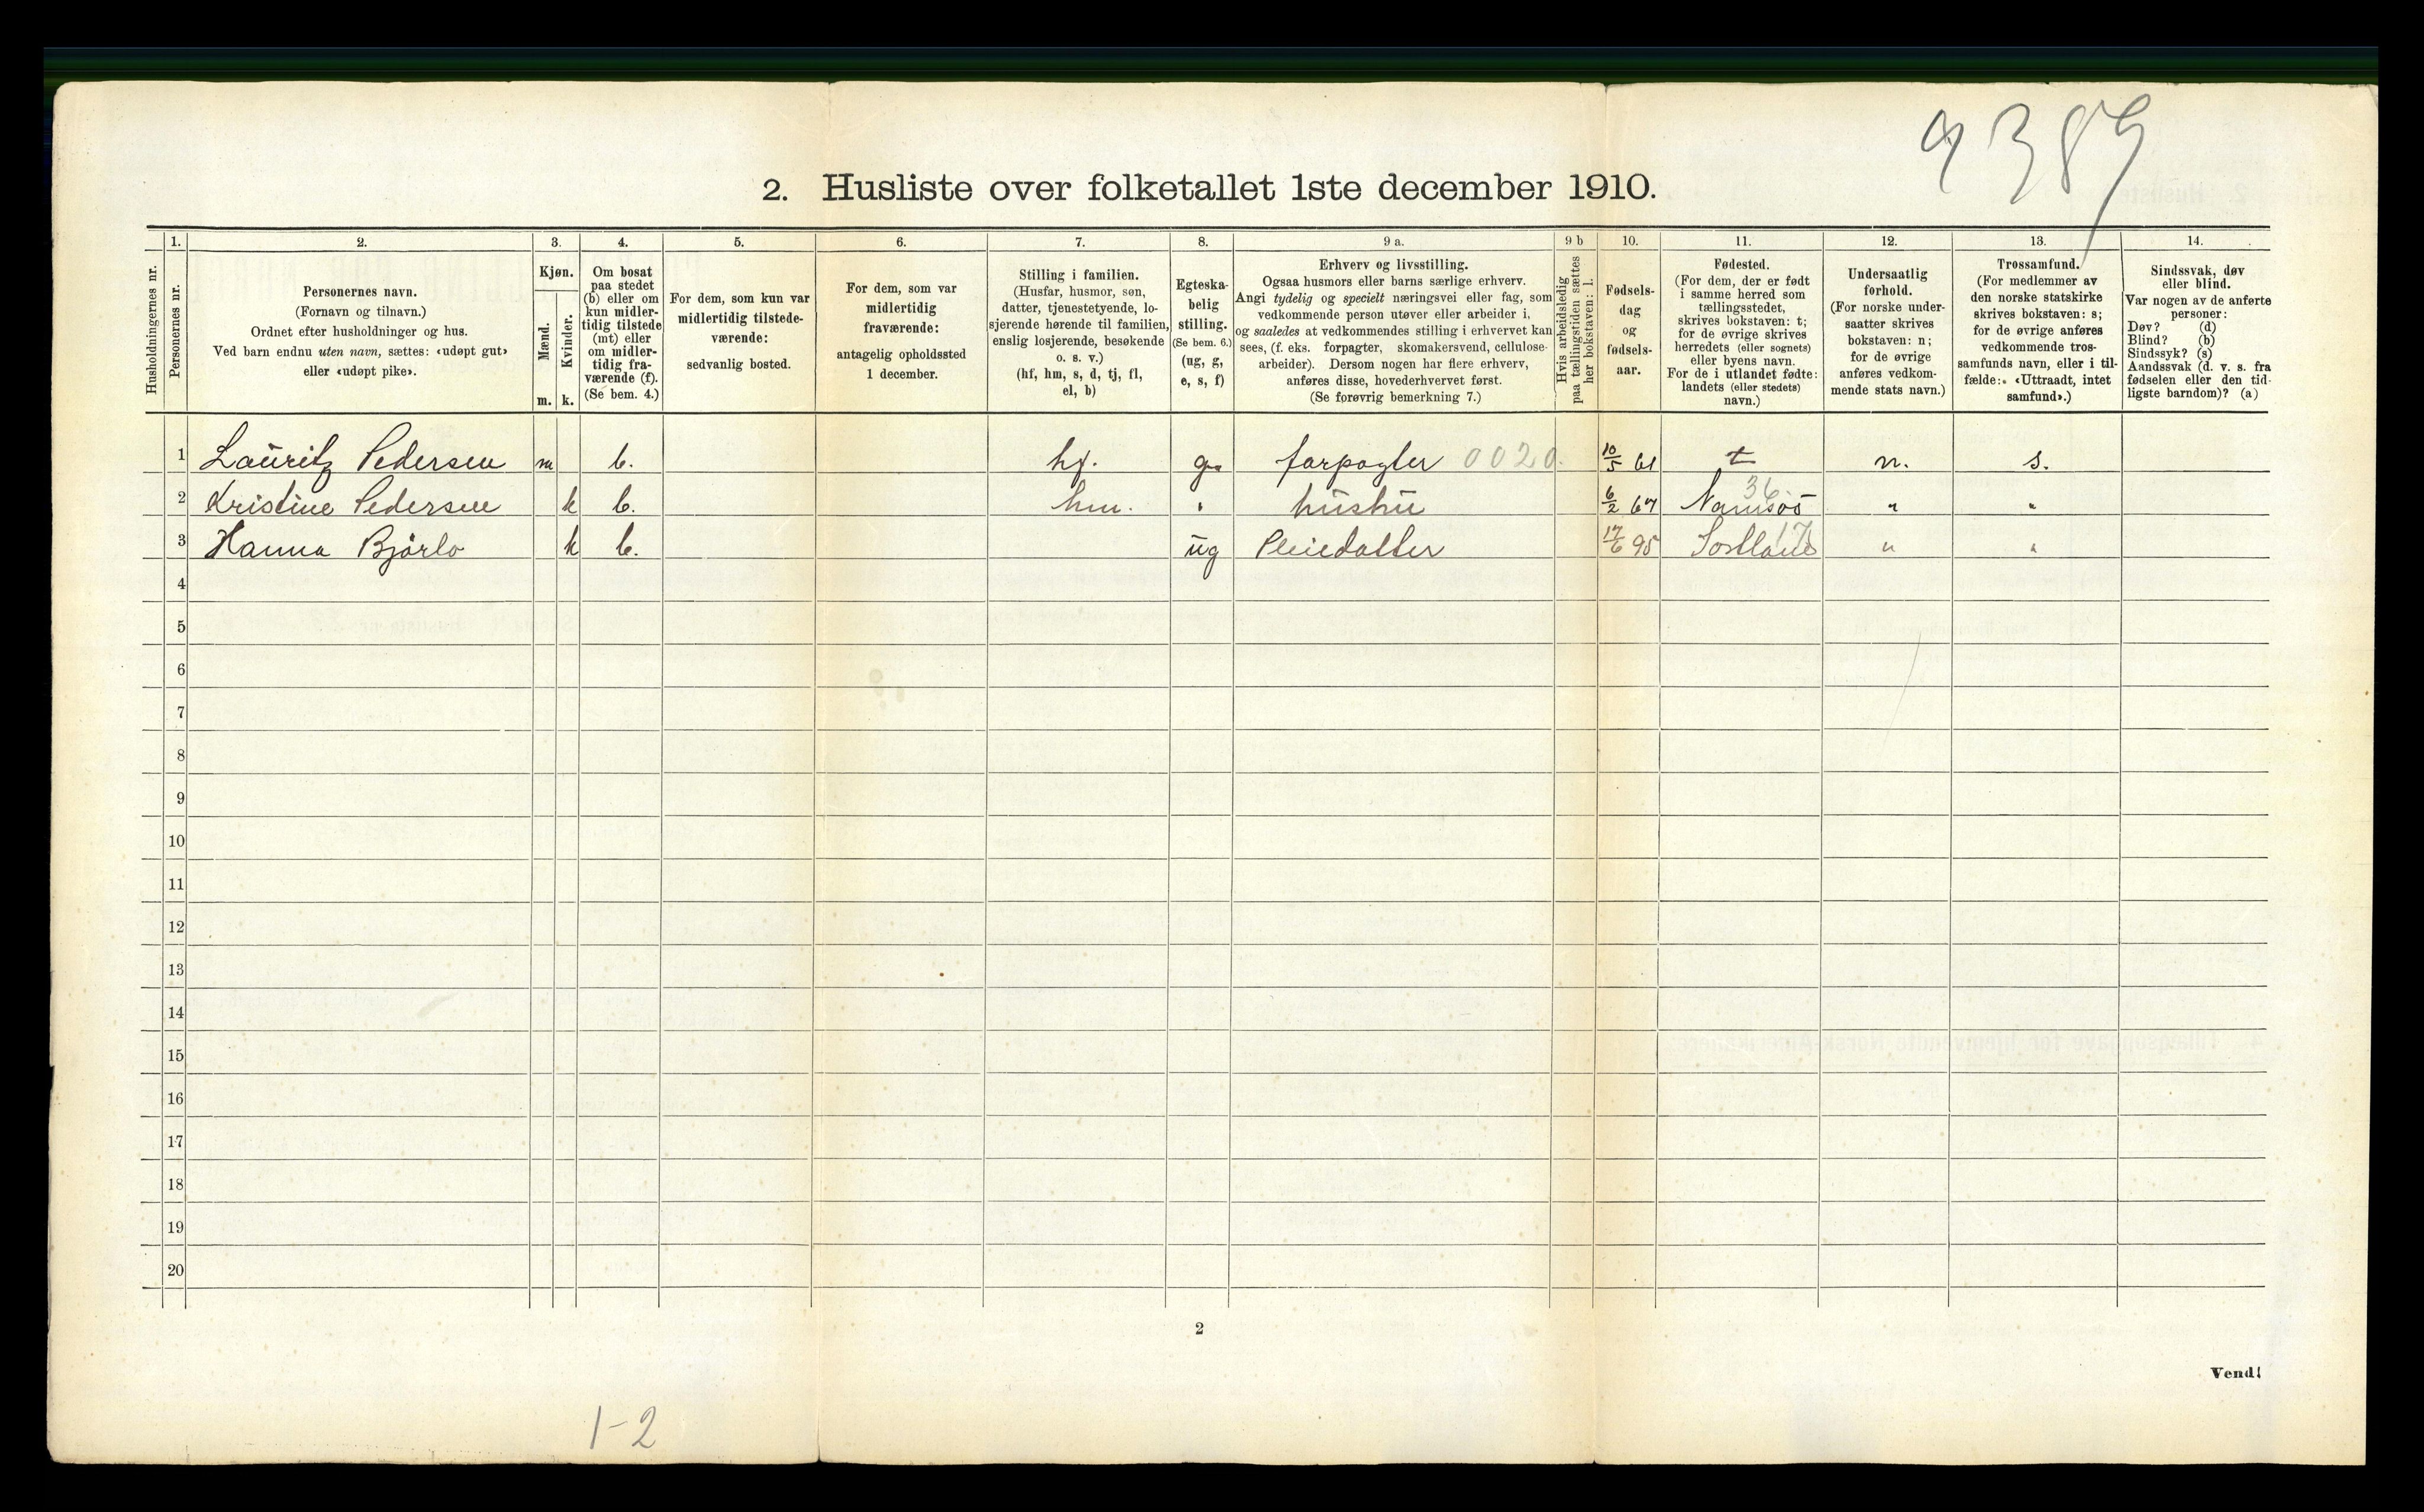 9389
2. Husliste over folketallet 1ste december 1910.
Husholdningernes nr.
1.
Personernes nr.
2.
Personernes navn.
(Fornavn og tilnavn.)
Ordnet efter husholdninger og hus.
Ved barn endnu uten navn, sættes: «udøpt gut»
eller «udøpt pike».
3.
Kjøn.
Mænd.
Kvinder.
m. k.
4.
Om bosat
paa stedet
(b) eller om
kun midler-
tidig tilstede
(mt) eller
om midler-
tidig fra-
værende (f).
(Se bem. 4.)
5.
For dem, som kun var
midlertidig tilstede-
værende:
sedvanlig bosted.
6.
For dem, som var
midlertidig
fraværende:
antagelig opholdssted
1 december.
7.
Stilling i familien.
(Husfar, husmor, søn,
datter, tjenestetyende, lo-
sjerende hørende til familien,
enslig losjerende, besøkende
o. s. v.)
(hf, hm, s, d, tj, fl,
el, b)
8.
Egteska-
belig
stilling.
(Se bem. 6.)
(ug, g,
e, s, f)
9 a.
Erhverv og livsstilling.
Ogsaa husmors eller barns særlige erhverv.
Angi tydelig og specielt næringsvei eller fag, som
vedkommende person utøver eller arbeider i,
og saaledes at vedkommendes stilling i erhvervet kan
sees, (f. eks. forpagter, skomakersvend, cellulose-
arbeider). Dersom nogen har flere erhverv,
anføres disse, hovederhvervet først.
(Se forøvrig bemerkning 7.)
9 b
Hvis arbeidsledig
paa tællingstiden sættes
her bokstaven: l.
10.
Fødsels-
dag
og
fødsels-
aar.
11.
Fødested.
(For dem, der er født
i samme herred som
tællingsstedet,
skrives bokstaven: t;
for de øvrige skrives
herredets (eller sognets)
eller byens navn.
For de i utlandet fødte:
landets (eller stedets)
navn.)
12.
Undersaatlig
forhold.
(For norske under-
saatter skrives
bokstaven: n;
for de øvrige
anføres vedkom-
mende stats navn.)
13.
Trossamfund.
(For medlemmer av
den norske statskirke
skrives bokstaven: s;
for de øvrige anføres
vedkommende tros-
samfunds navn, eller i til-
fælde: «Uttraadt, intet
samfund».)
14.
Sindssvak, døv
eller blind.
Var nogen av de anførte
personer:
Døv? (d)
Blind? (b)
Sindssyk? (s)
Aandssvak (d. v. s. fra
fødselen eller den tid-
ligste barndom)? (a)
1 Lauritz Pedersen m b. hf. g forpagter 0020. 10/5 61 t n. s.
2 Kristine Pedersen k b. hm. " hustru 6/2 67 36 " "
3 Hanna Bjørlo k b. ug Pleiedatter 17/6 95 17 " "
4
5
6
7
8
9
10
11
12
13
14
15
16
17
18
19
20
2
Vend!
1-2